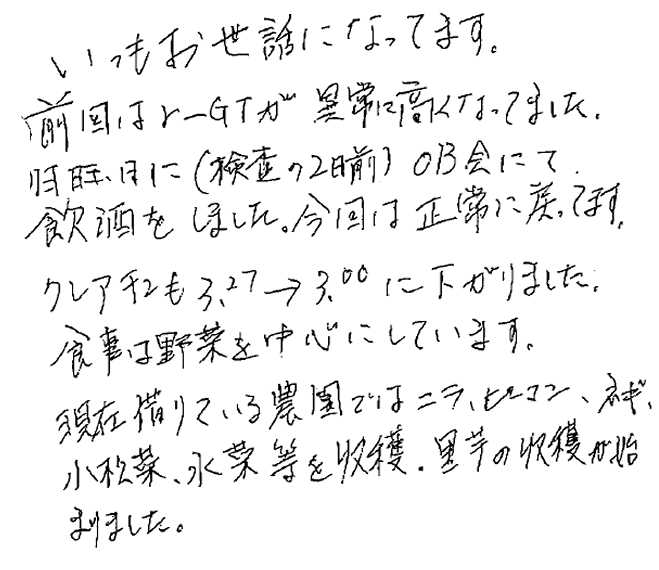 いつもお世話になってます。
前回はγ-GTが異常に高くなってました。
日に(検査の2日前)OB会にて
飲酒をしました。今回は正常に戻ってます。
クレアチンも3.27→3.00に下がりました。
食事は野菜を中心にしています。
現在借りている農園ではニラ、ピーマン、ネギ、
小松菜、水菜等を収穫.里芋の収穫が始
まりました。